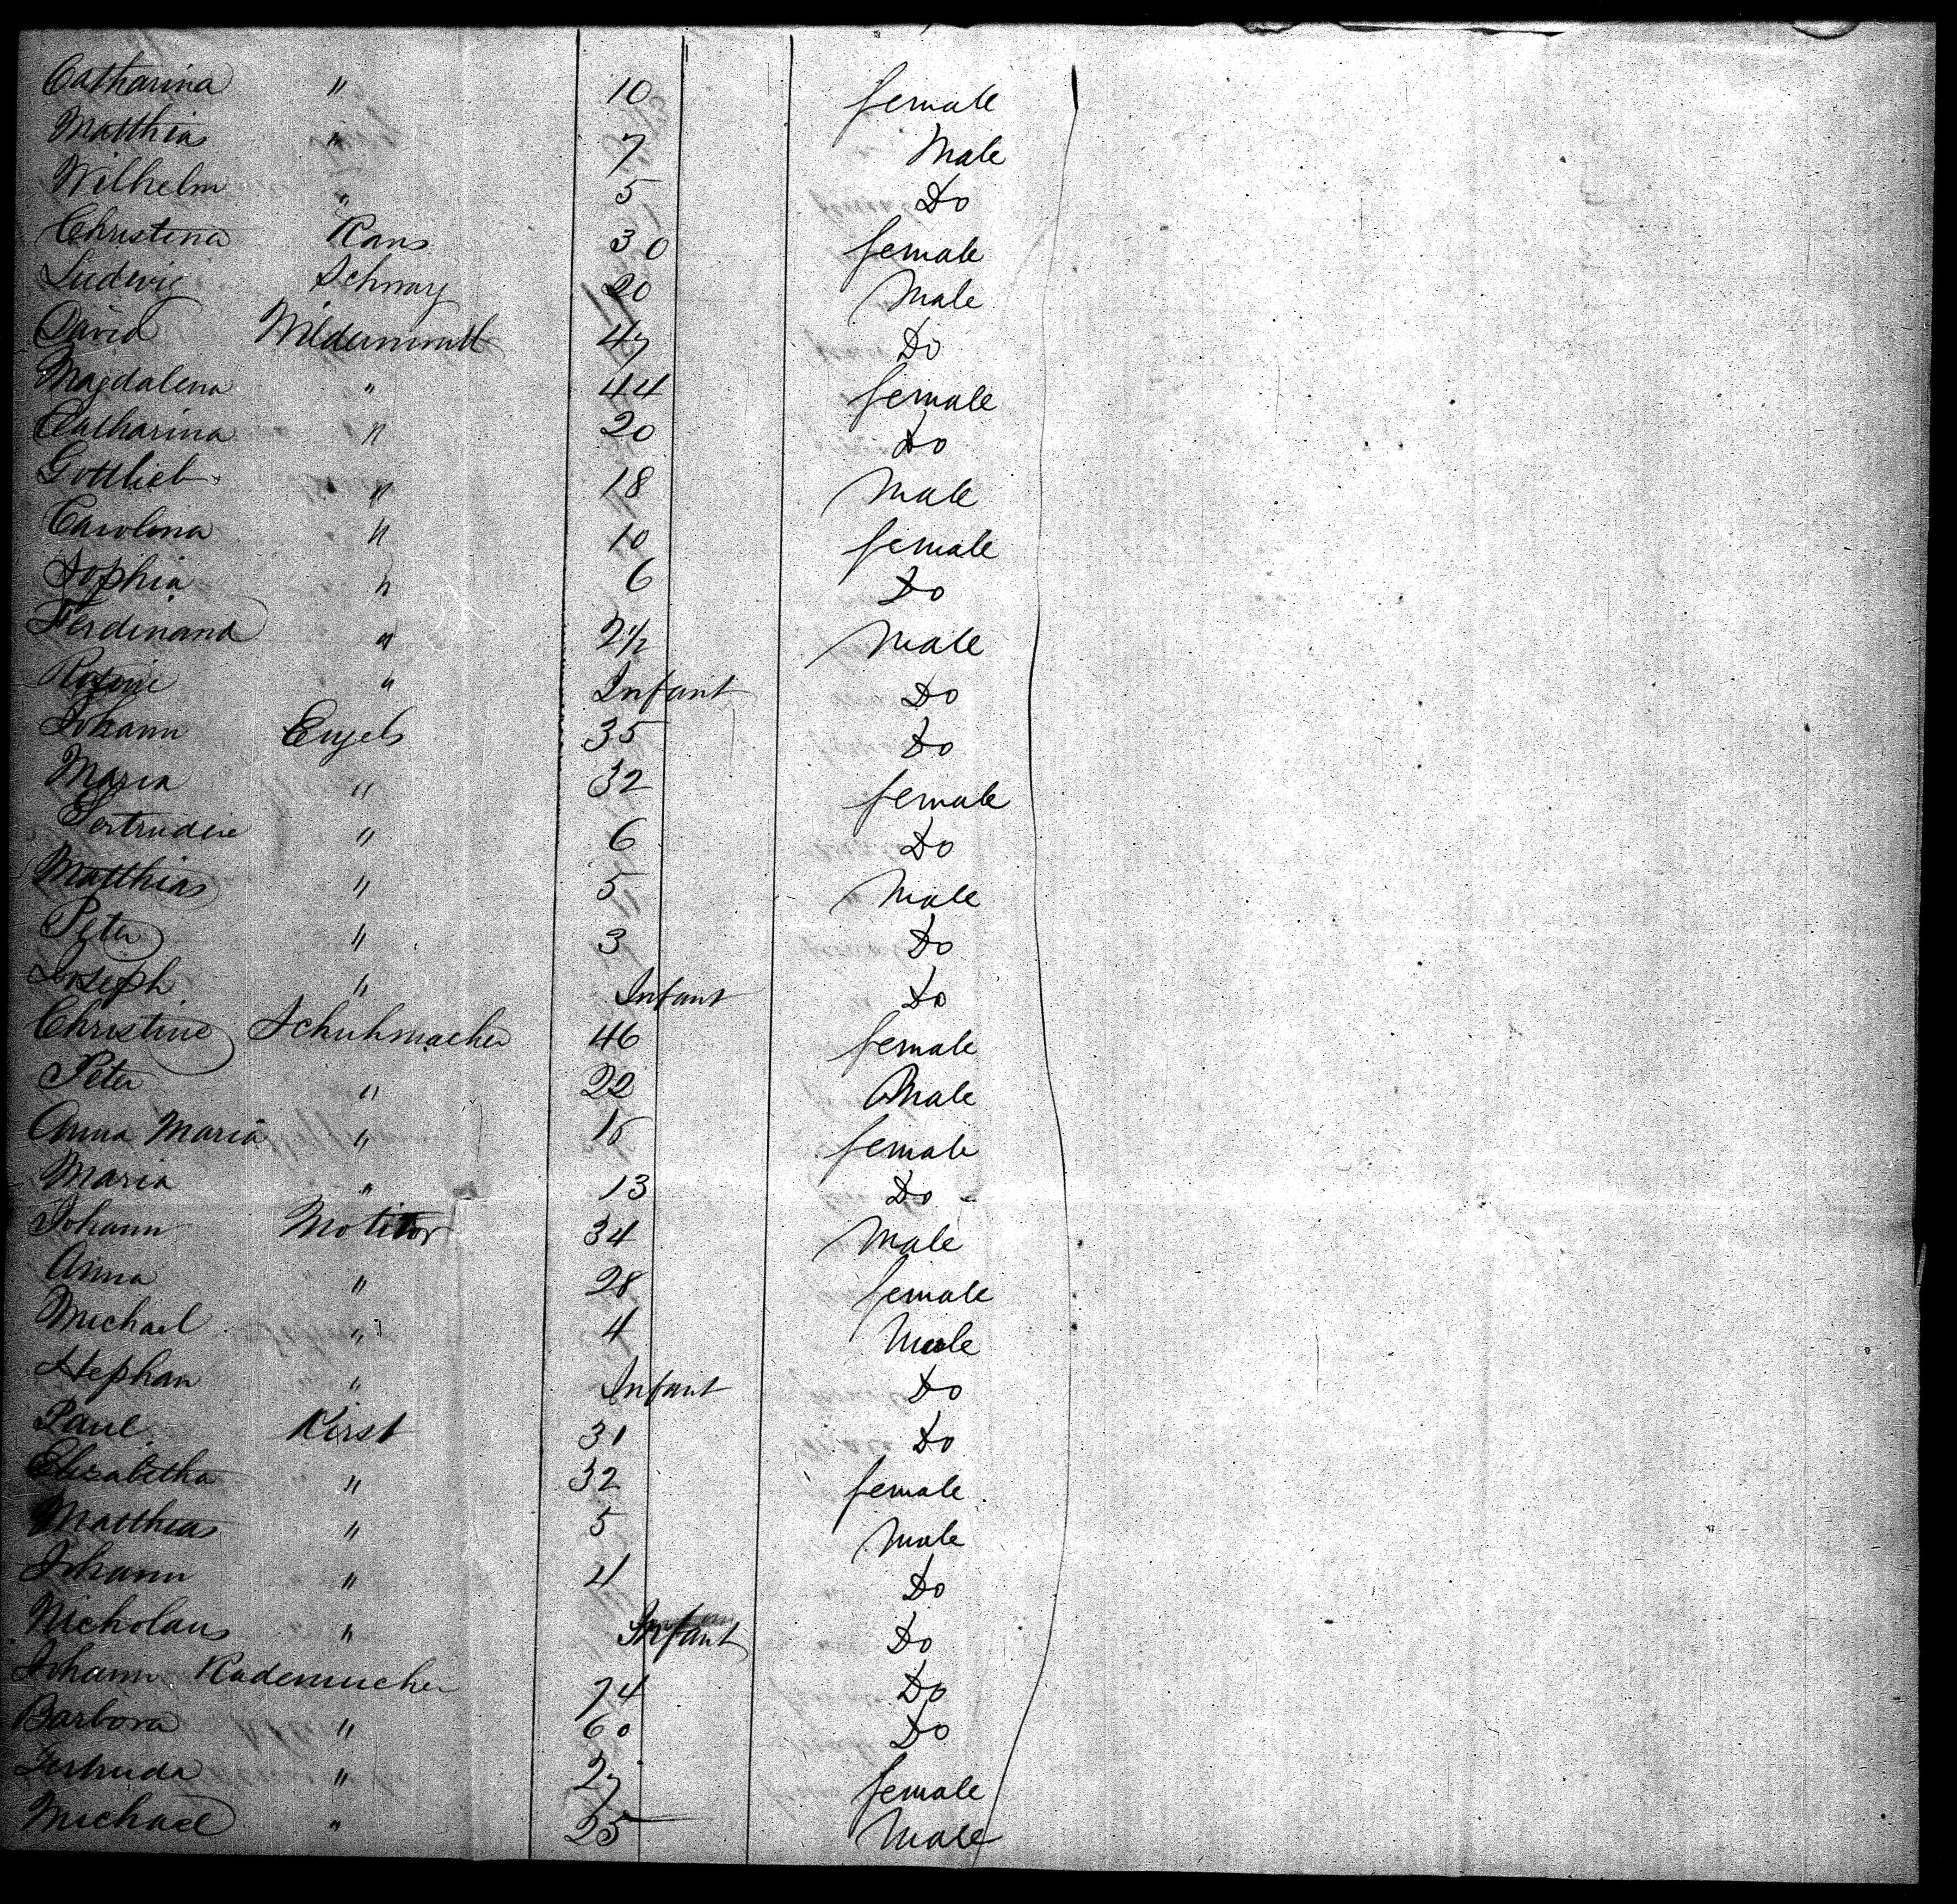 Catharina " 10 female
Matthias " 7 Male
Wilhelm " 5 Do
Christina Kans 30 female
Ludwig Schnay 20 Male
David Wildermuth 47 Do
Magdalena " 44 female
Catharina " 20 Do
Gottlieb " 18 Male
Carolina " 10 female
Sophia " 6 Do
Ferdinand " 2½ Male
Rosine " Infant Do
Johann Engels 35 Do
Maria " 32 female
Gertrudie " 6 Do
Matthias " 5 Male
Peter " 3 Do
Joseph " Infant Do
Christine Schuhmacher 46 female
Peter " 22 Male
Anna Maria " 15 female
Maria " 13 Do
Johann Molitor 34 Male
Anna " 28 female
Michael " 4 Male
Stephan " Infant Do
Paul Kirst 31 Do
Elisabetha " 32 female
Matthias " 5 Male
Johann " 4 Do
Nicholaus " Infant Do
Johann Rademacher 74 Do
Barbora " 60 Do
Gertruda " 27 female
Michael " 25 Male